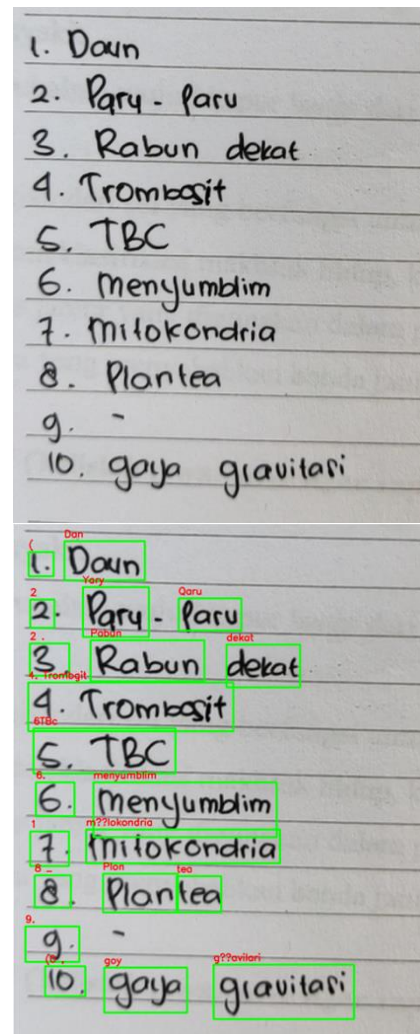 1. Daun
2. Paru - Paru
3. Rabun dekat
4. Trombosit
5. TBC
6. menyumblim
7. mitokondria
8. Plantea
9. -
10. gaya gravitasi
Dan
( 1. Daun
Yary
2 Qaru
2. Paru - Paru
2 . Pabun dekat
3. Rabun dekat
4. Trombgit
4. Trombosit
6TBc
5. TBC
6. menyumblim
6. menyumblim
1 m??lokondria
7. mitokondria
8 - Plon tea
8. Plantea
9.
9. -
(8 . goy g??avilari
10. gaya gravitasi